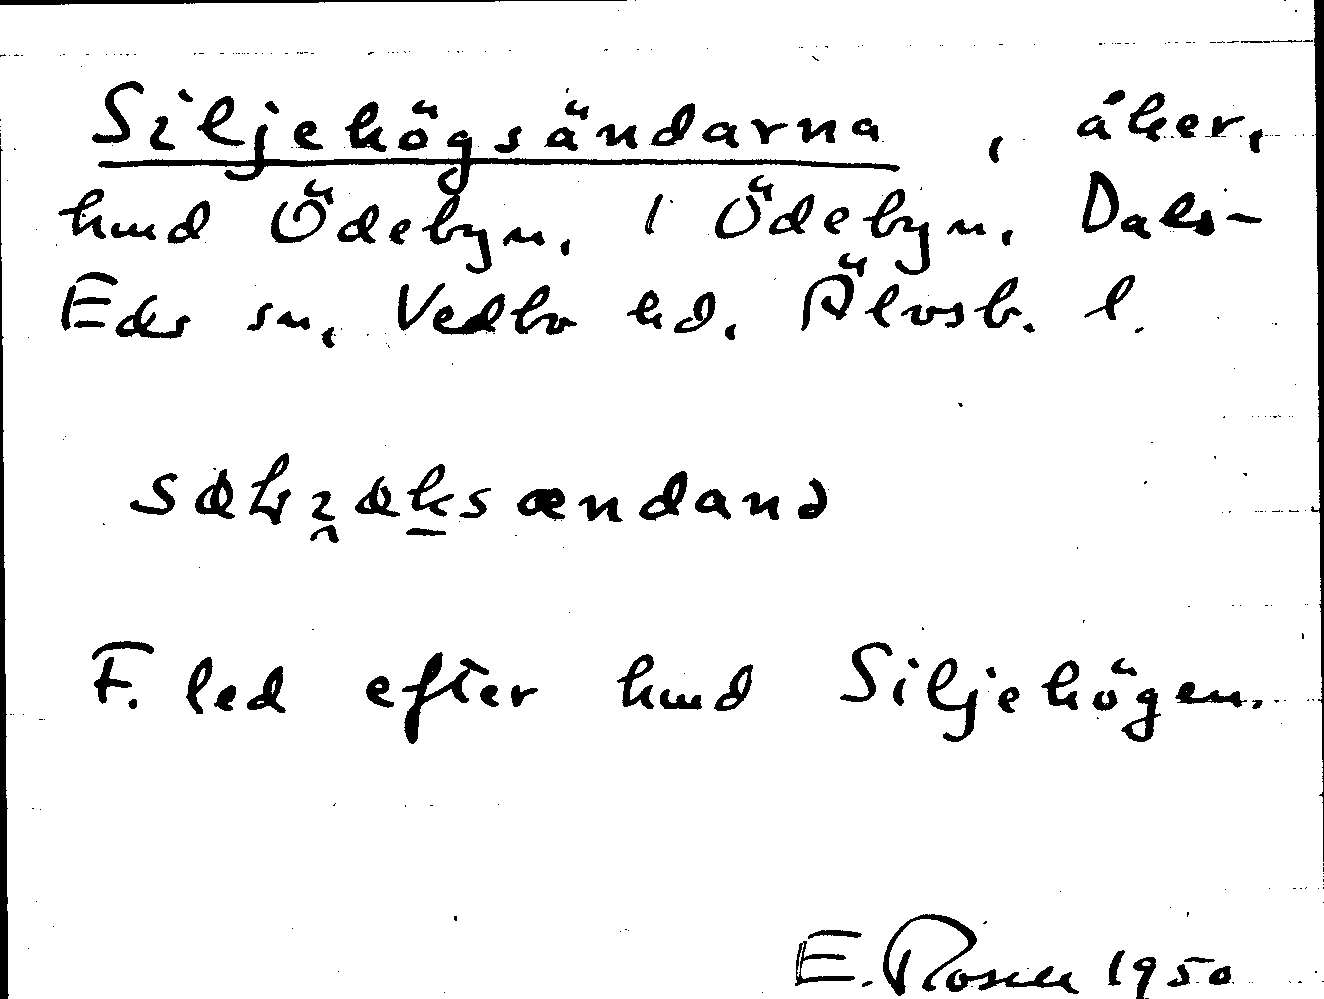 Siljehögsändarna, åker,
hmd Ödebyn, 1 Ödebyn, Dals-
Eds sn, Vedbo hd. Älvsb. l.
F. led efter hmd Siljehögen.
E. Rosell 1950